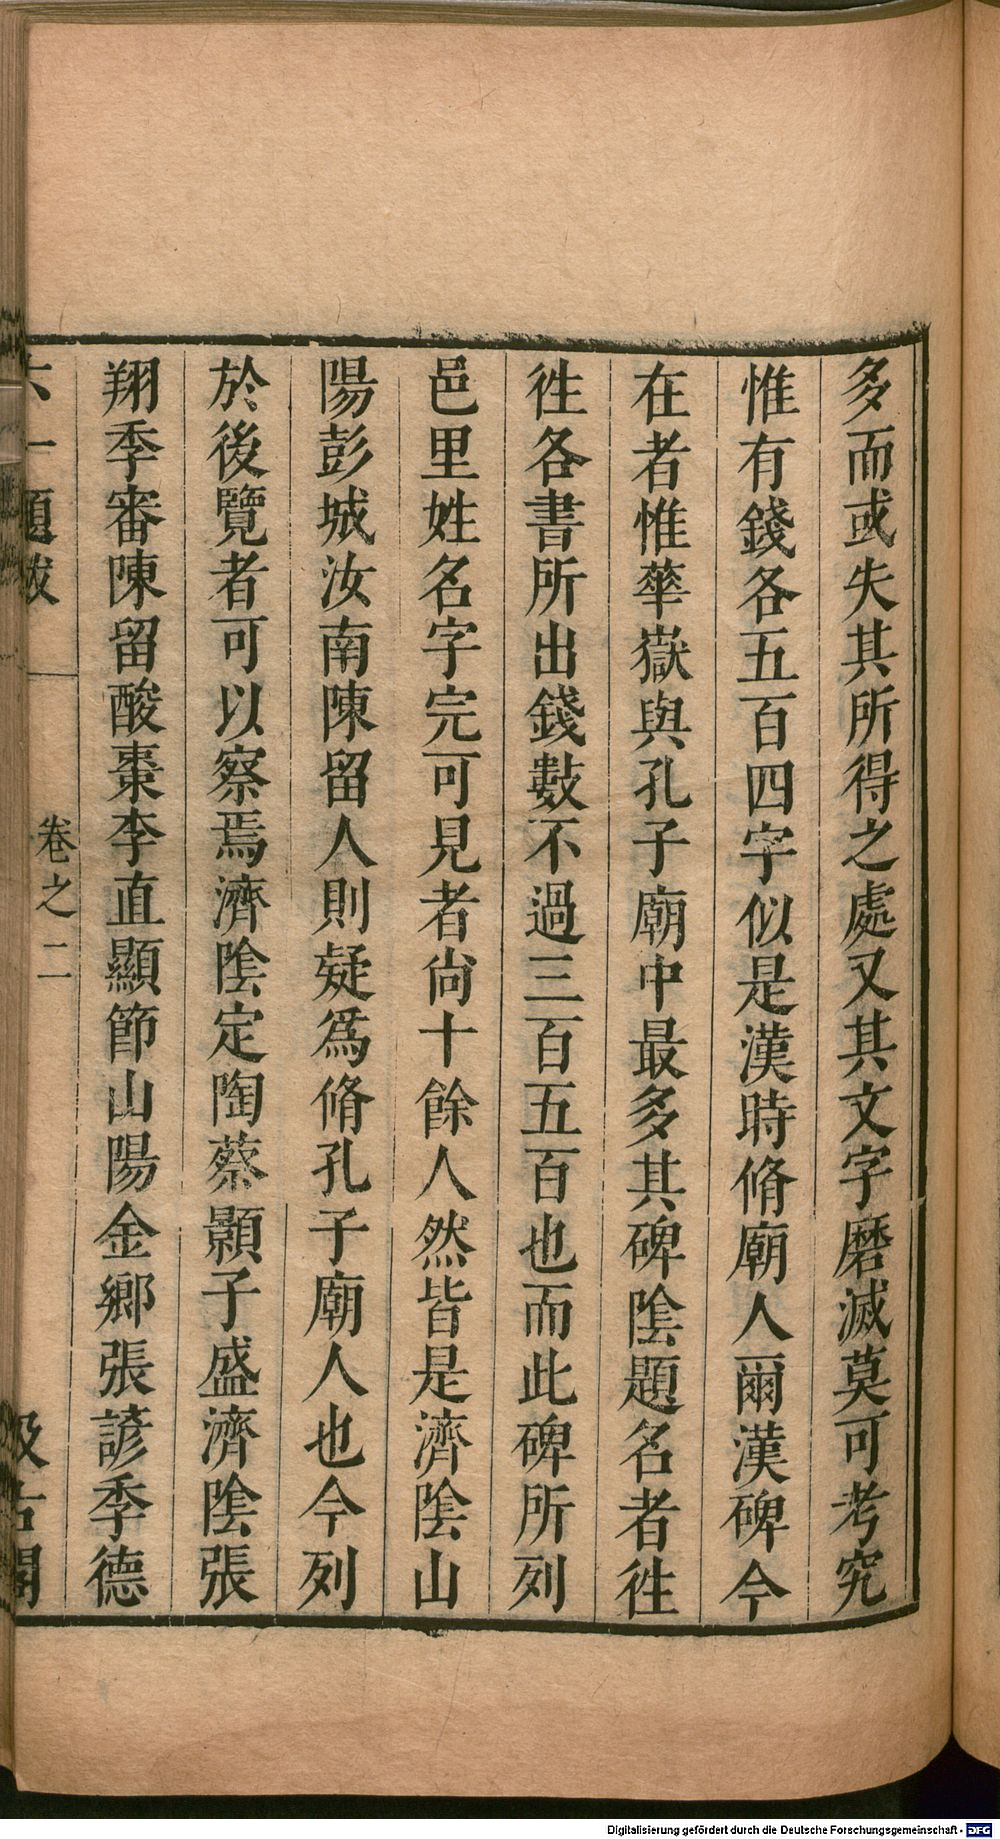 多而或失其所得之處又其文字磨滅莫可考究
惟有錢各五百四字似是漢時脩廟人爾漢碑今
在者惟華嶽與孔子廟中最多其碑陰題名者徃
徃各書所出錢數不過三百五百也而此碑所列
邑里姓名字完可見者尚十餘人然皆是濟陰山
陽彭城汝南陳留人則疑爲脩孔子廟人也今列
於後覽者可以察焉濟陰定陶蔡顥子盛濟陰張
翔季審陳留酸棗李直顯節山陽金鄉張諺季德
六一題跋 卷之二 汲古閣
Digitalisierung gefördert durch die Deutsche Forschungsgemeinschaft - DFG